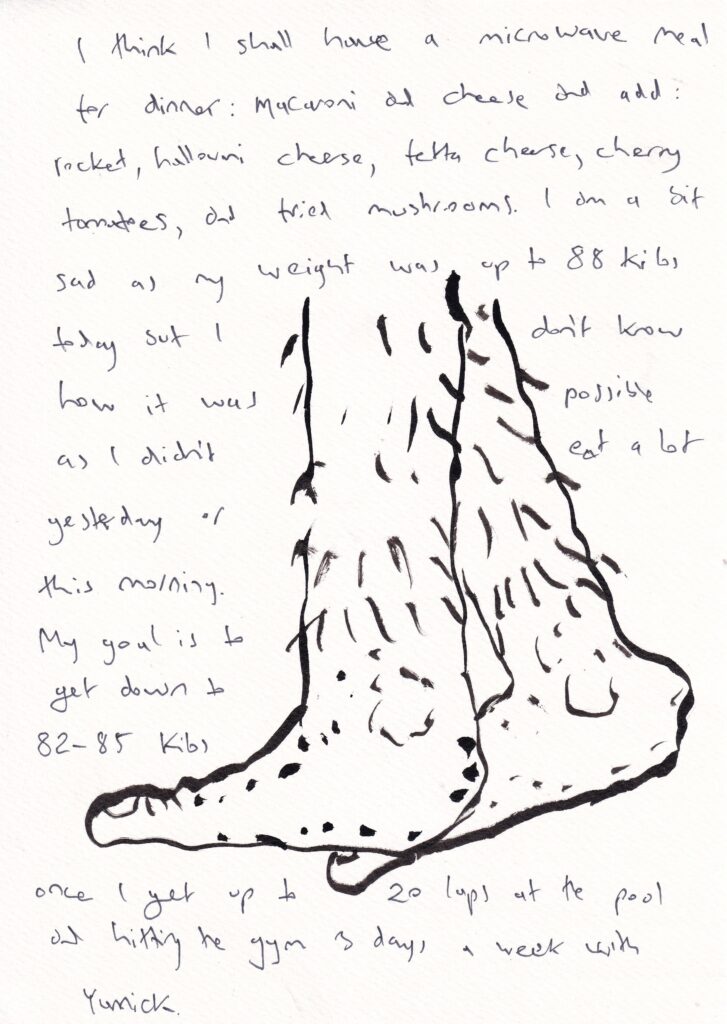 I think I shall have a microwave meal
for dinner: Macaroni and cheese and add:
rocket, halloumi cheese, fetta cheese, cherry
tomatoes, and fried mushrooms. I am a bit
sad as my weight was up to 88 kibs
today but I don't know
how it was possible
as I didn't eat a lot
yesterday or
this morning.
My goal is to
get down to
82-85 kibs
once I get up to 20 laps at the pool
and hitting the gym 3 days a week with